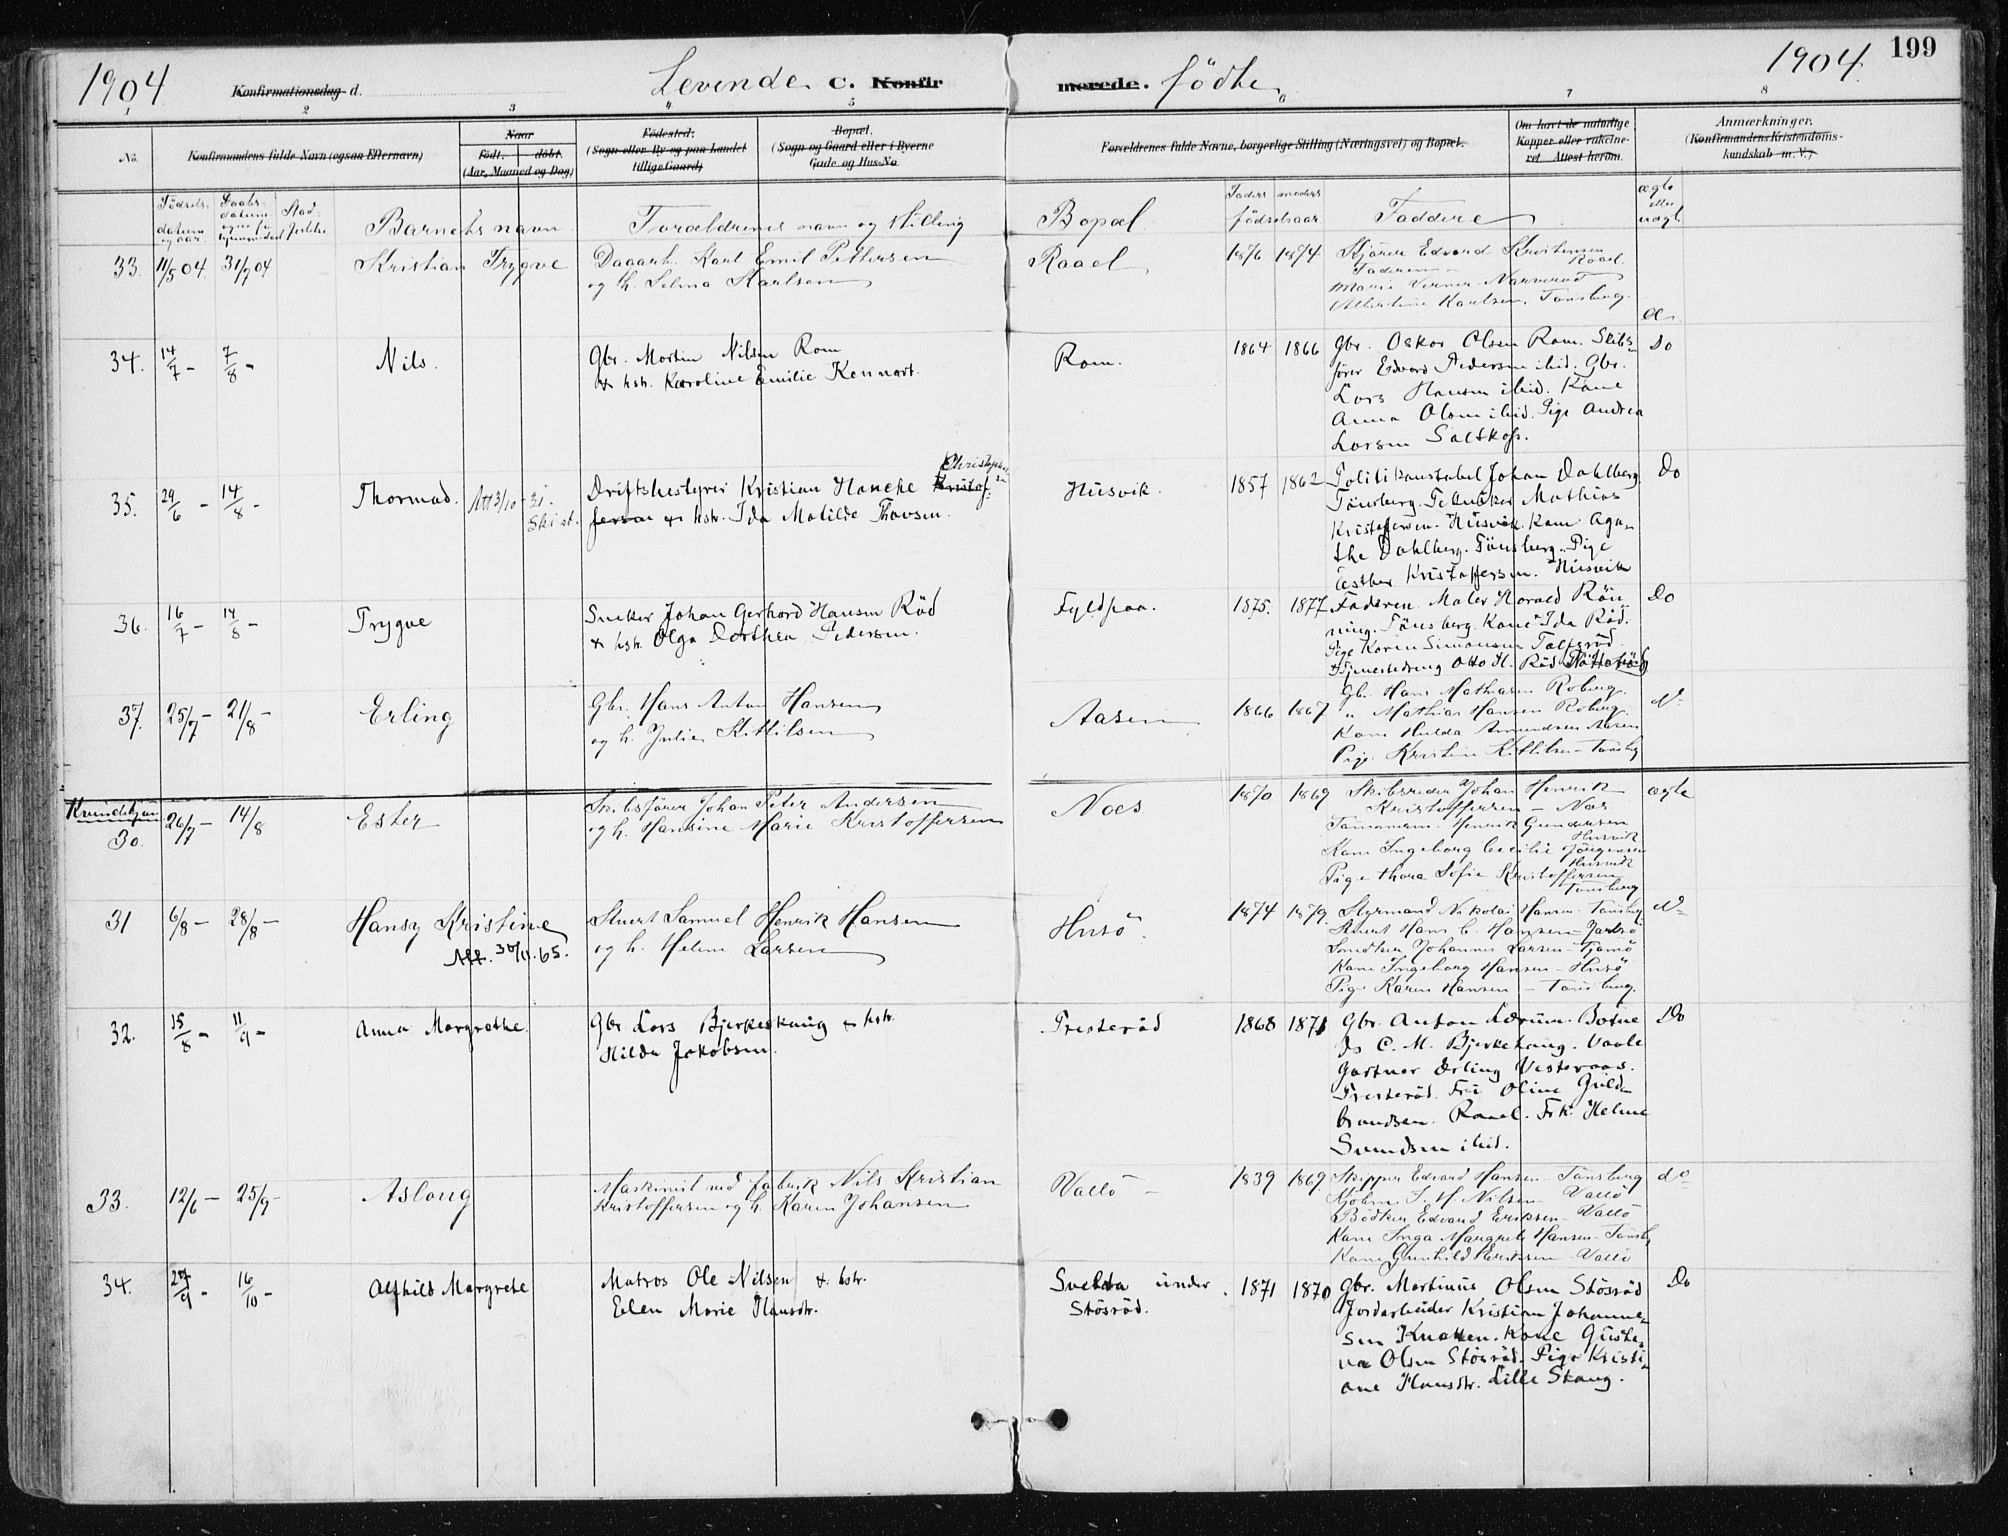 1904
Konfirmationsdag d.
Levende C. Konfirmerede. fødte
1904.
199
1 2 3 4 5 6 7 8
No.
Konfirmandens fulde Navn (ogsaa Efternavn)
Naar
født. døbt.
(Aar, Maaned og Dag)
Fødested.
(Sogn eller By og paa Landet
tillige Gaard)
Bopæl.
(Sogn og Gaard eller i Byerne
Gade og Hus-No
Forældrenes fulde Navne, borgerlige Stilling (Næringsvei) og Bopæl.
Om havt de naturlige
Kopper eller vakcine-
ret. Attest herom.
Anmærkninger.
(Konfirmandens Kristendoms-
kundskab m. V.)
Fødsels-
datum
og aar.
Daabs-
datum
Barnets navn
Forældrenes navn og stilling
Bopæl
Faders moders
fødselsaar
Faddere
ægte
eller
uægte
33. 11/5 04. 31/7 04
Kristian Trygve
Dagarb. Karl Emil Pettersen
og h. Selma Karlsen
Raael
1876 1874
Edvard Kristensen
Raael
Faderen
Albertine Karlsen, Tønsberg.
34. 14/7 - 7/8 -
Nils.
Gbr. Martin Nilsen Rom
& hstr. Karoline Emilie Kennart.
Rom.
1864 1866
Gbr. Oskar Olsen Rom. Skibs-
fører Edvard Pedersen ibid. Gbr.
Lars Hansen ibid. Kone
Anna Olsen ibid. Pige Andrea
Larsen Saltkop.
Do
35. 29/6 - 14/8 -
Thormod.
Att 3/10 - 31.
Driftsbestyrer Kristian Hancke Kristof-
Christophersen
fersen & hstr. Ida Matilde Thovsen.
Husvik.
1857 1862
Politikonstabel Johan Dahlberg
Tønsberg. Mathias
Kristoffersen. Husvik. Kone Aga-
the Dahlberg. Tønsberg. Pige
Esther Kristoffersen. Husvik
Do
36. 16/7 - 14/8 -
Trygve
Snekker Johan Gerhard Hansen Rød
& hstr. Olga Dorthea Pedersen.
Fyldpaa.
1875. 1877
Faderen. Maler Harald Røn-
ning. Tønsberg. Kone Ida Rød.
Pige Karen Simonsen Tolfsrød
Otto H. Rød Nøtterø
Do
37. 25/7 - 21/8 -
Erling
Gbr. Hans Anton Hansen
og h. Julie Kittilsen
Aasen
1866 1867
Gbr. Hans Mathiasen Roberg.
" Mathias Hansen Roberg.
Kone Hulda Amundsen Aasen
Pige Kristine Kittilsen - Tønsbg
do
Kvindekjøn
30. 26/7 - 14/8
Ester
Skibsfører Johan Peter Andersen
og h. Hansine Marie Kristoffersen
Noes
1870 1869
Skibsreder Johan Henrik
Kristoffersen - Nøs.
Tømmerm. Henrik Gundersen
Husvik
Kone Ingeborg Cecilie Jörgensen
Husvik
Pige Thora Sofie Kristoffersen
Tønsberg
ægte
31 6/8 - 28/8 -
Hansy Kristine
Att. 30/11.65.
Stuert Samuel Henrik Hansen
og h. Helene Larsen
Husö.
1874 1879.
Styrmand Nikolai Hansen - Tønsbg
Stuert Hans C. Hansen - Jarlsö
Smedken Johannes Larsen - Tjømö
Kone Ingeborg Hansen - Husö
Pige Karen Hansen - Tønsberg.
do
32. 15/8 - 11/9 -
Anna Margrethe.
Gbr. Lars Bjerkeskaug & hstr.
Hilda Jakobsen.
Presterød
1868 1871
Gbr. Anton Lerum. Botne
Do C. M. Bjerkehaug. Vaale
Gartner Erling Vesteraas.
Presterød. Frk Oline Guld-
brandsen. Raael. Frk. Helene
Svendsen ibid.
Do
33. 12/6 - 25/9 -
Aslaug
Maskinist ved fabrik Nils Kristian
Kristoffersen og h. Karen Johansen
Vallö -
1839 1869
Skipper Edvard Hansen - Tønsberg
Nilsen - Vallö
Bödker Edvard Eriksen - Vallö
Kone Inga Margrete Hansen - Tønsbg
Kone Gunhild Eriksen - Vallö
do
34. 27/9 - 16/10 -
Alfhild Margrete
Matros Ole Nilsen & hstr.
Elen Marie Hansdtr.
Svelta under
Støsrød.
1871 1870
Gbr. Martinus Olsen Støsrød
Jordarbeider Kristian Johanne-
sen Knatten. Kone Gusta-
va Olsen Støsrød. Pige Kristi-
ane Hansdtr. Lille Skaug.
Do